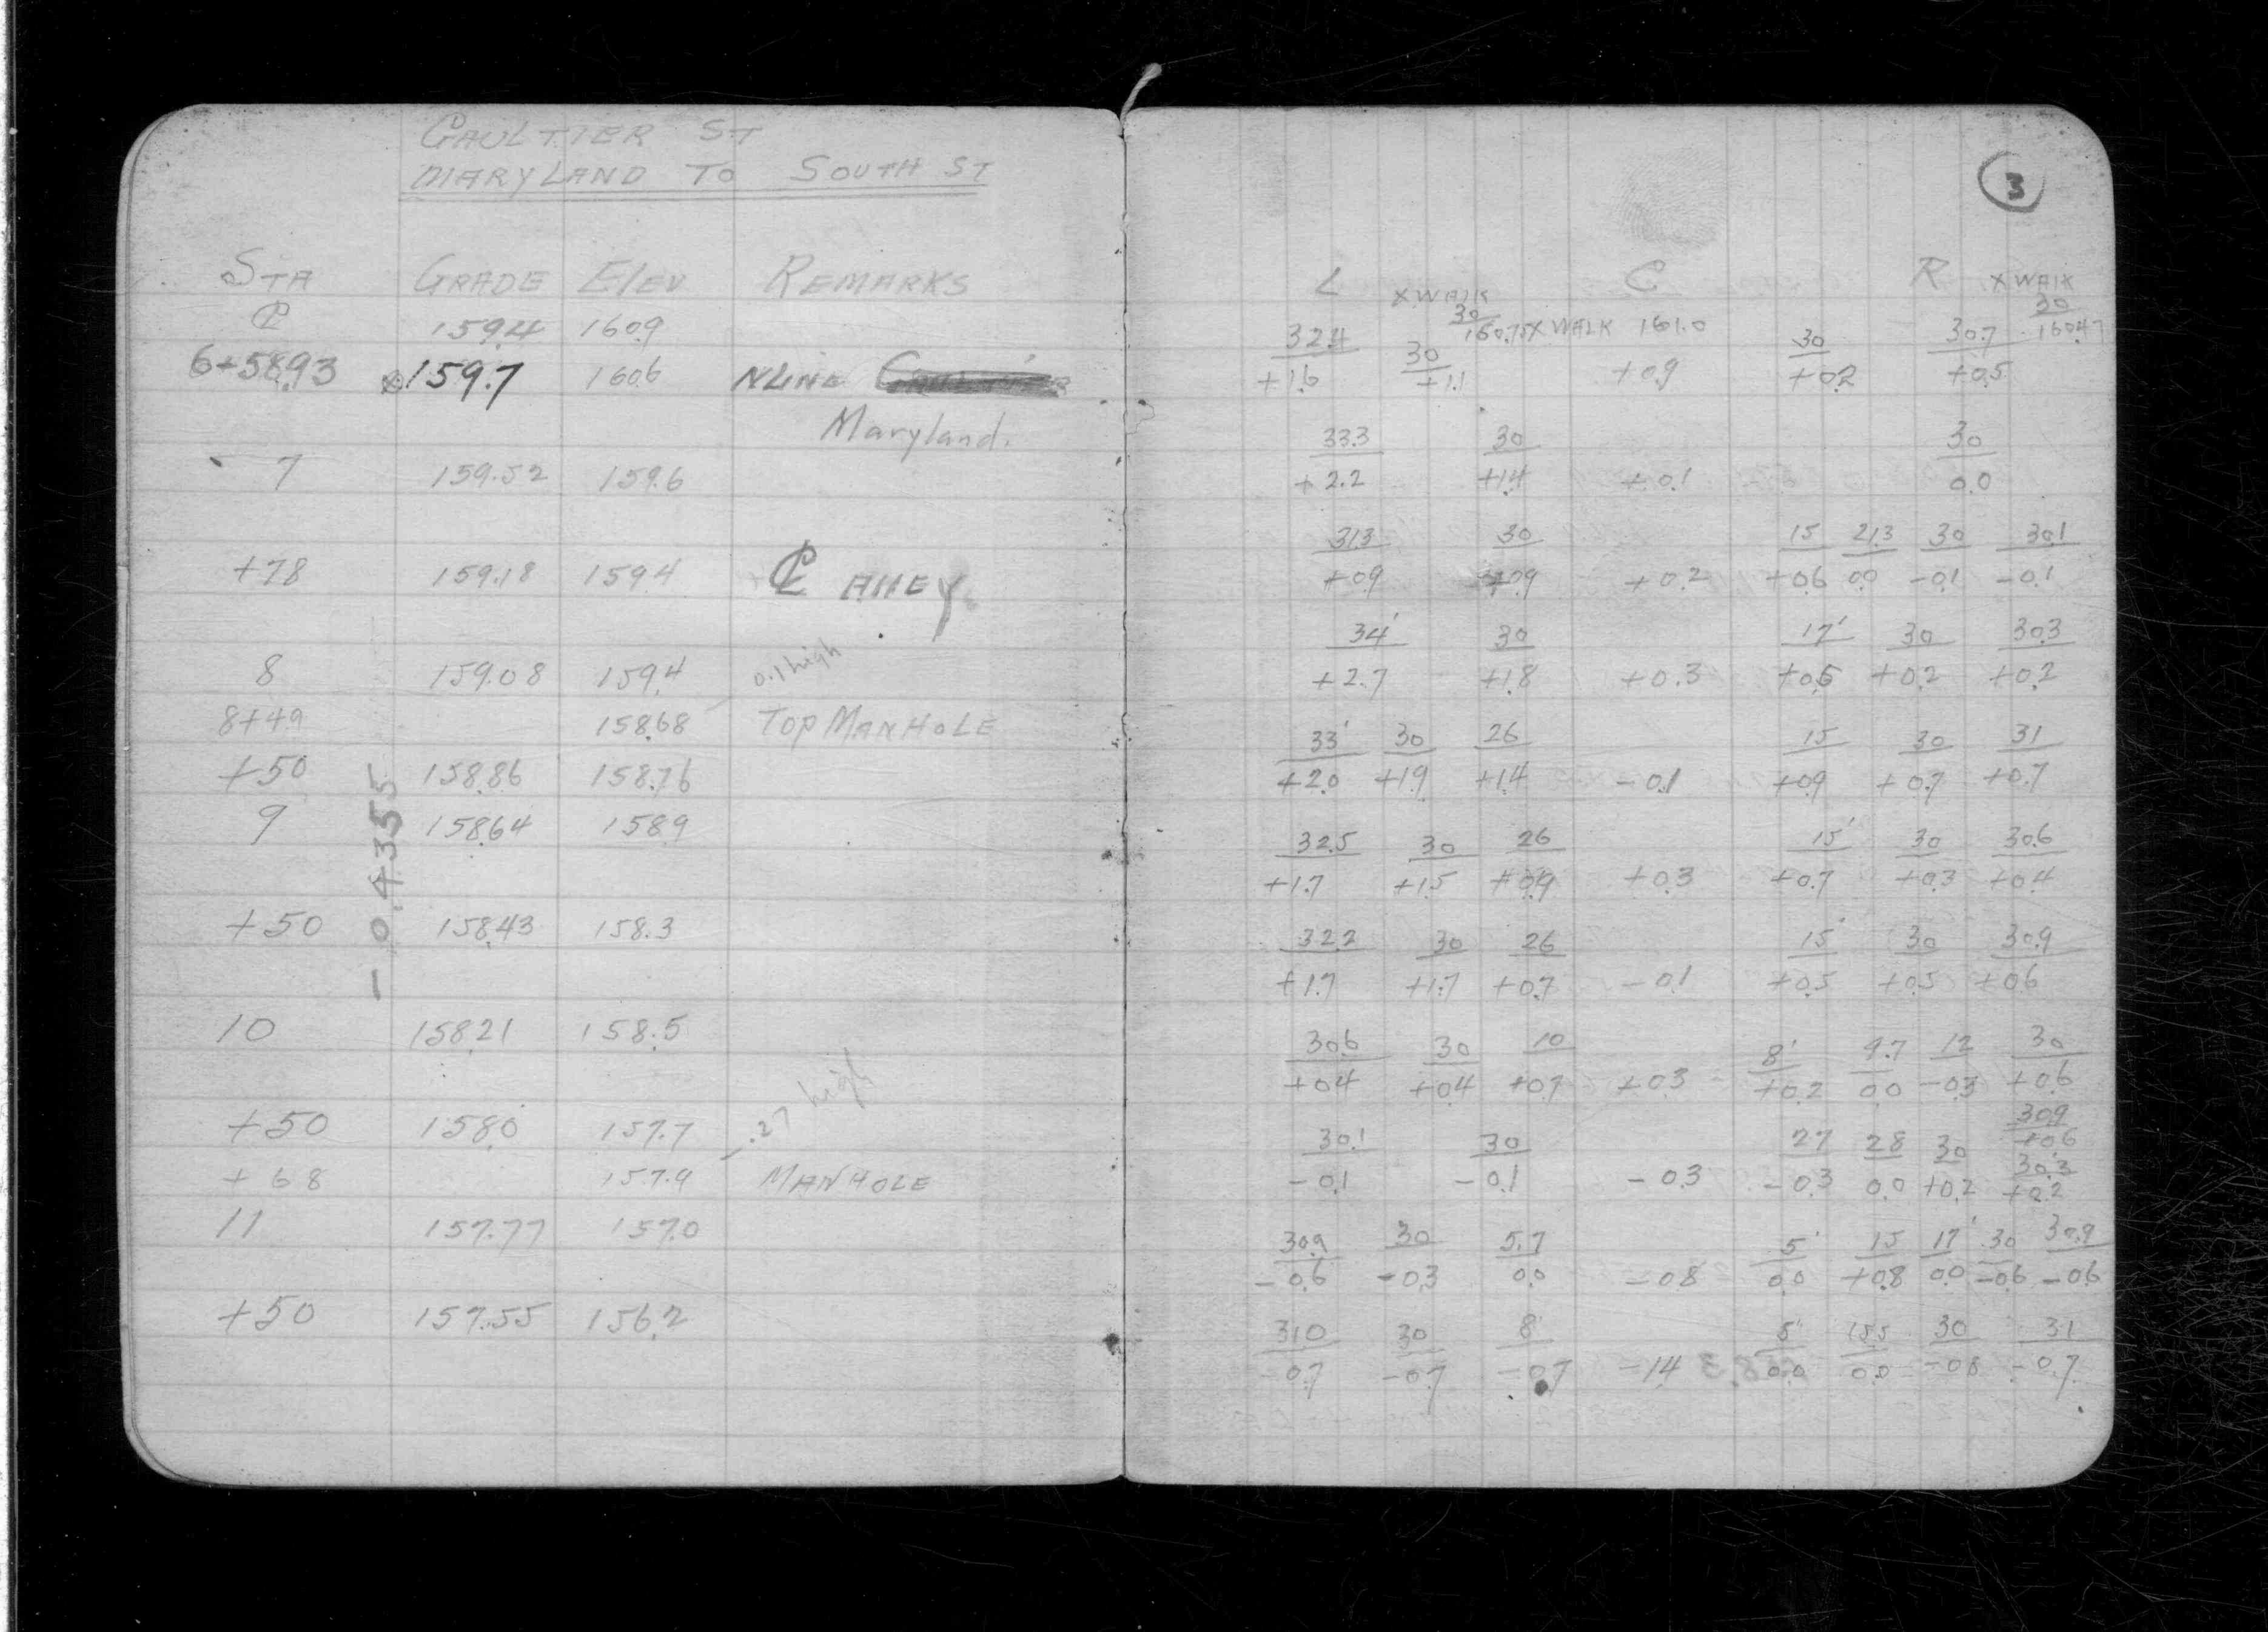 GAULTIER ST
MARYLAND TO SOUTH ST
STA GRADE Elev REMARKS
℄ 159.4 160.9
6+58.93 159.7 160.6 N LINE
Maryland.
7 159.52 159.6
+78 159.18 159.4 ℄ ALLEY
0.1 high
8 159.08 159.4
8+49 158.68 TOP MANHOLE
+50 158.86 158.76
9 158.64 158.9
- 0.4355
+50 158.43 158.3
10 158.21 158.5
.27 high
+50 158.0 157.7
+68 157.9 MANHOLE
11 157.77 157.0
+50 157.55 156.2
3
L X WALK C R X WALK
30 30
32.4 160.75 X WALK 161.0 30 30.7 160.47
30
+1.6 +1.1 +0.9 +0.2 +0.5
33.3 30 30
+2.2 +1.4 +0.1 0.0
31.3 30 15 21.3 30 30.1
+0.9 +0.9 +0.2 +0.6 0.0 -0.1 -0.1
34' 30 17' 30 30.3
+2.7 +1.8 +0.3 +0.5 +0.2 +0.2
33' 30 26 15 30 31
+2.0 +1.9 +1.4 -0.1 +0.9 +0.7 +0.7
32.5 30 26 15' 30 30.6
+1.7 +1.5 +0.9 +0.3 +0.7 +0.3 +0.4
32.2 30 26 15' 30 30.9
+1.7 +1.7 +0.7 -0.1 +0.5 +0.5 +0.6
30.6 30 10 8' 9.7 12 30
+0.4 +0.4 +0.7 +0.3 +0.2 0.0 -0.3 +0.6
30.9
30.1 30 27 28 30 +0.6
30.3
-0.1 -0.1 -0.3 -0.3 0.0 +0.2 +0.2
30.9 30 5.7 5' 15 17' 30 30.9
-0.6 -0.3 0.0 -0.8 0.0 +0.8 0.0 -0.6 -0.6
31.0 30 8' 5' 15.5 30 31
-0.7 -0.7 -0.7 -1.4 0.0 0.0 -0.8 -0.7